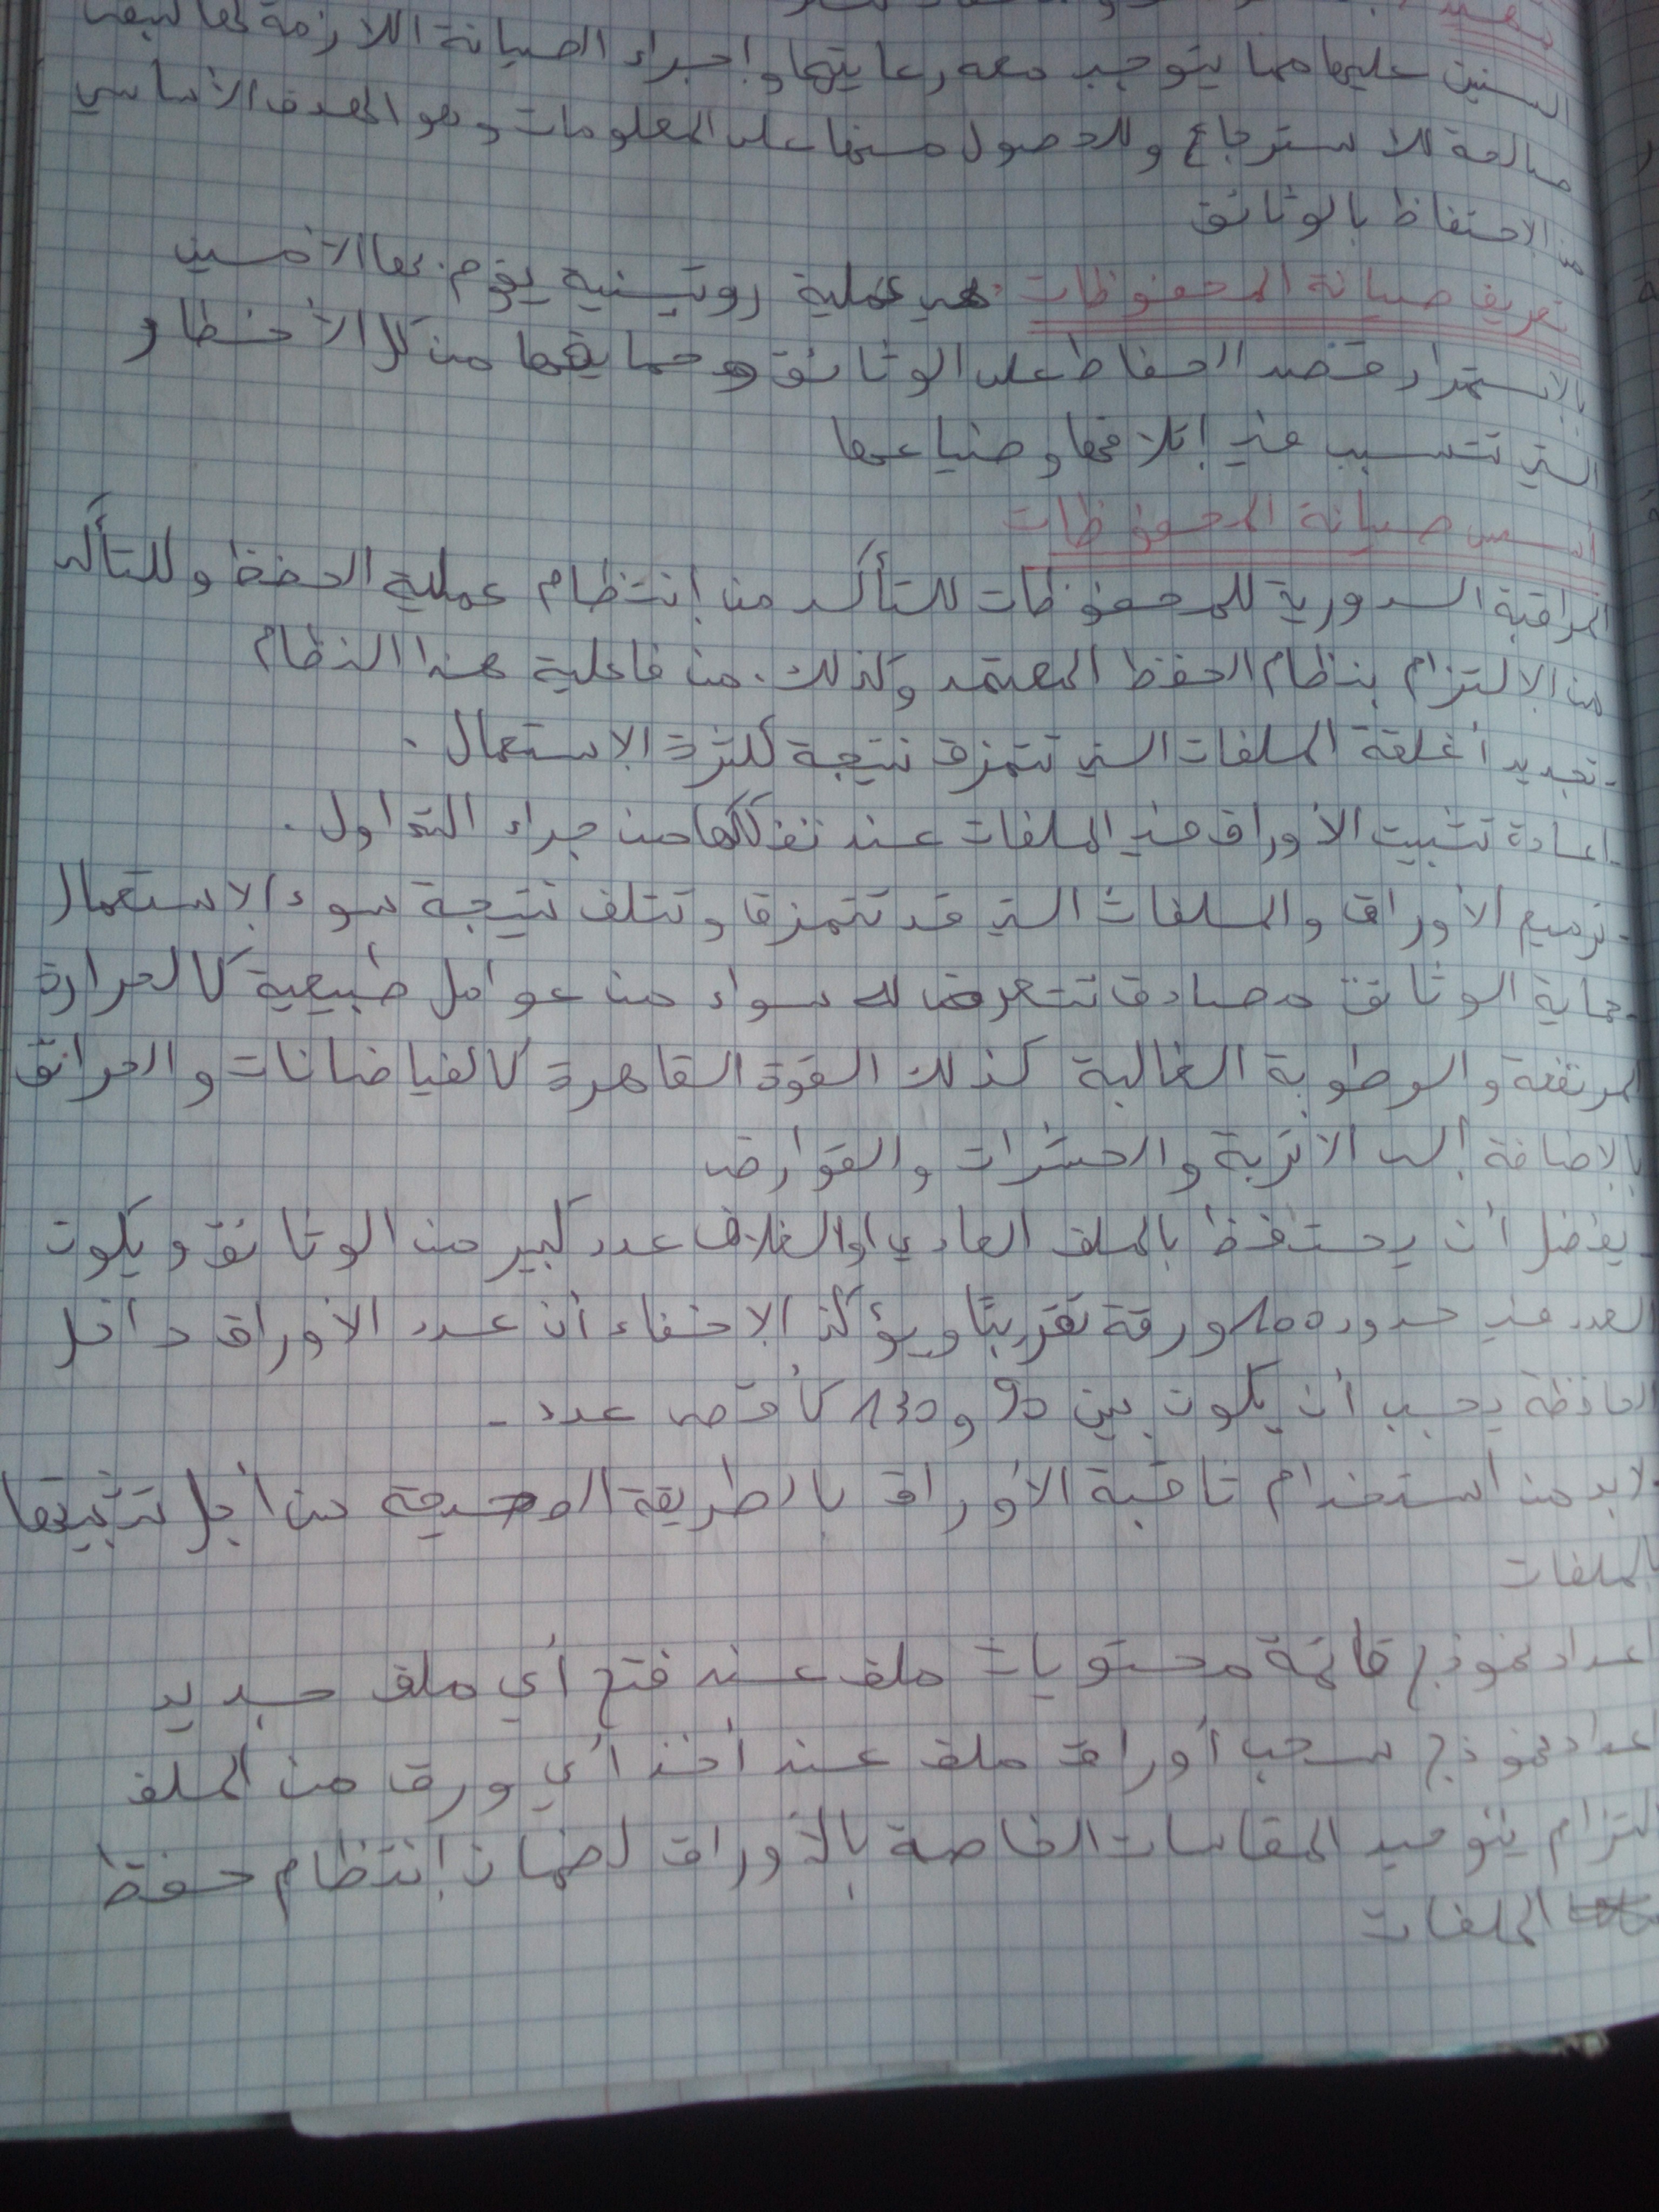 تمهيد:
السنين عليها مما يتوجب معه رعايتها وإجراء الصيانة اللازمة لها لتبقى
صالحة للاسترجاع وللحصول منها على المعلومات وهو الهدف الأساسي
من الاحتفاظ بالوثائق
تعريف صيانة المحفوظات: هي عملية روتينية يقوم بها الأمين
بالاستمرار قصد الحفاظ على الوثائق وحمايتها من كل الأخطار
التي تتسبب في إتلافها وضياعها
أسس صيانة المحفوظات
المراقبة الدورية للمحفوظات للتأكد من إنتظام عملية الحفظ وللتأكد
من الإلتزام بنظام الحفظ المعتمد وكذلك من فاعلية هذا النظام
- تجديد أغلفة الملفات التي تتمزق نتيجة لكثرة الإستعمال.
- اعادة تثبيت الأوراق في الملفات عند تفككها من جراء التداول.
- ترميم الأوراق والملفات التي قد تتمزق وتتلف نتيجة سوء الإستعمال
- حماية الوثائق مما قد تتعرض له سواء من عوامل طبيعية كالحرارة
المرتفعة والرطوبة الغالبة كذلك القوة القاهرة كالفياضانات والحرائق
بالإضافة إلى الأتربة والحشرات والقوارض
- يفضل أن يحتفظ بالملف العادي او الغلاف عدد كبير من الوثائق ويكون
العدد في حدود 100 ورقة تقريبًا ويؤكد الإخفاء أن عدد الأوراق داخل
الحافظة يجب أن يكون بين 90 و 130 كأقصى عدد -
- لابد من استخدام ثاقبة الأوراق بالطريقة الصحيحة من أجل تثبيتها
بالملفات
اعداد نموذج قائمة محتويات ملف عند فتح أي ملف جديد
اعداد نموذج سحب أوراق ملف عند أخذ أي ورق من الملف
إلتزام بتوحيد المقاسات الخاصة بالأوراق لضمان إنتظام حفظ
الملفات